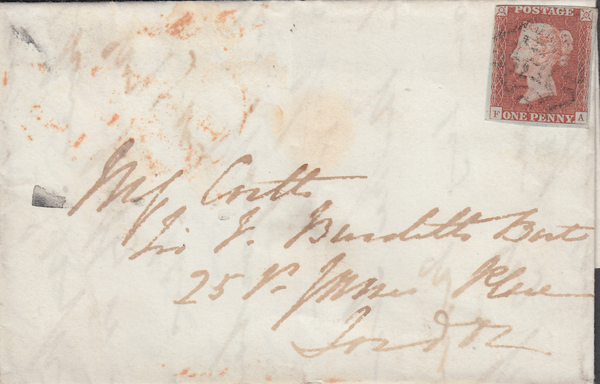 POSTAGE
F A
ONE PENNY
Miss Coutts
Sir F. Burdetts Bart
25 St James Place
London